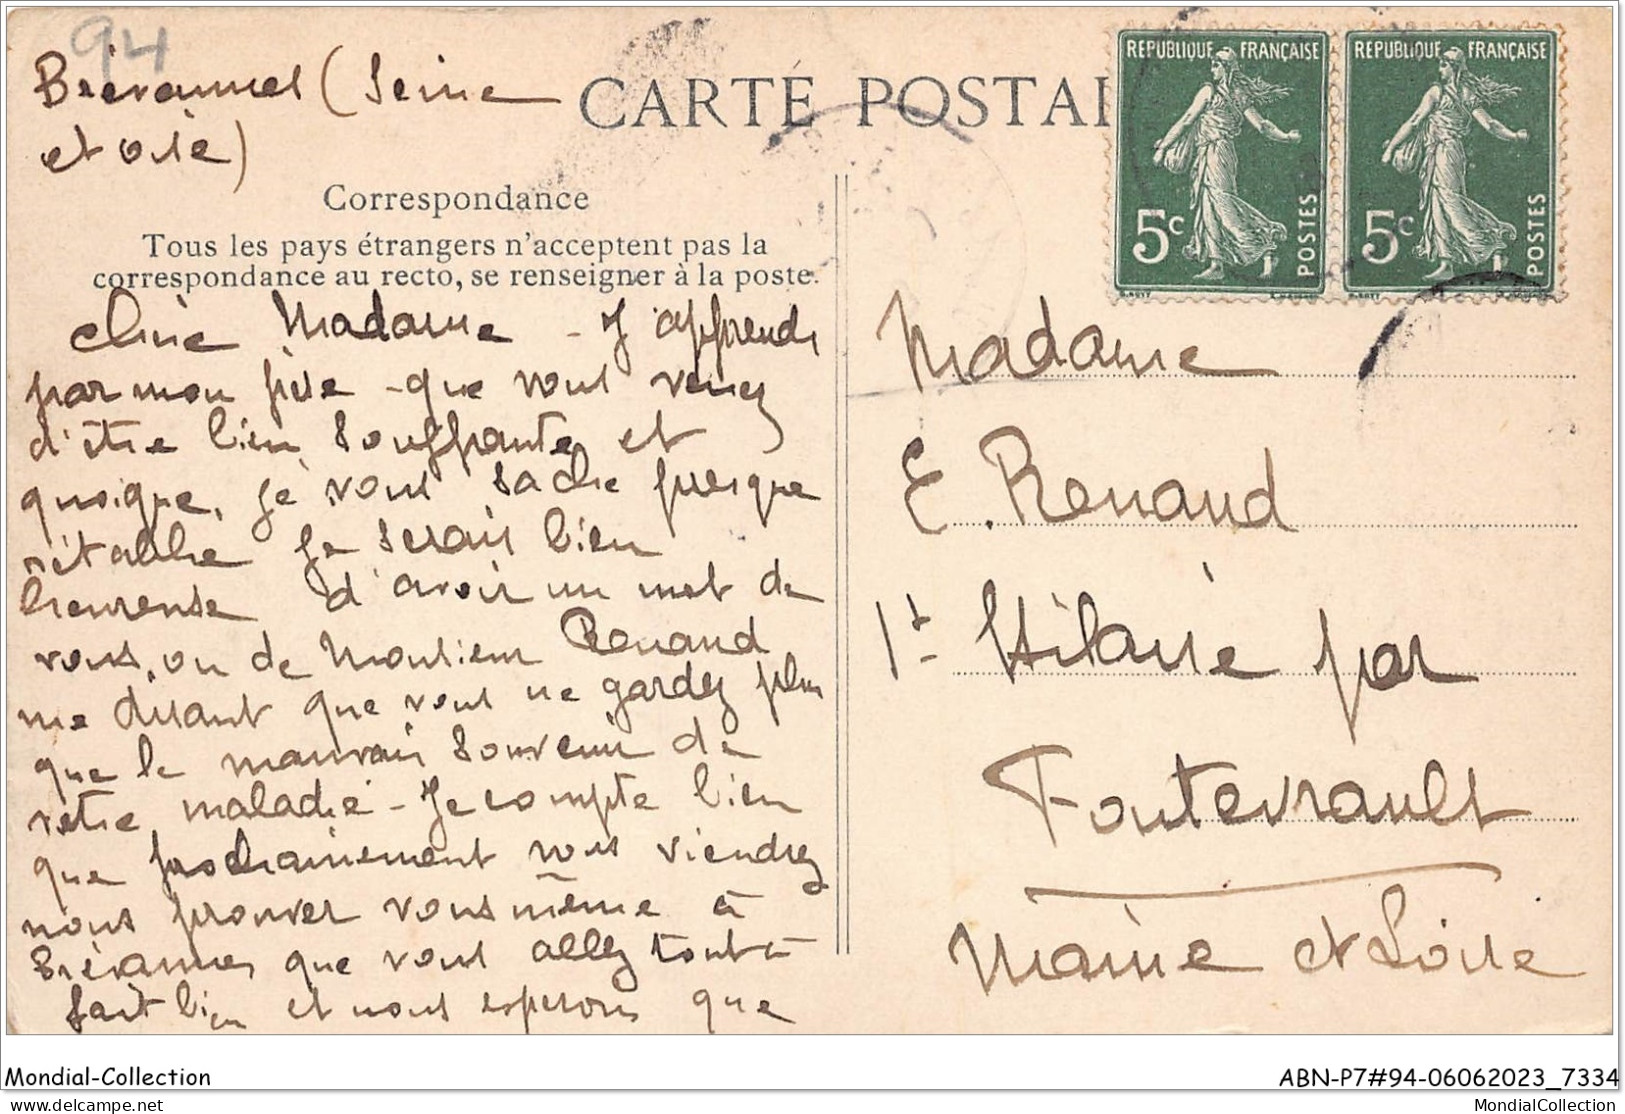 94
Brévannes (Seine
et oise)
CARTE POSTAL
Correspondance
Tous les pays étrangers n'acceptent pas la
correspondance au recto, se renseigner à la poste.
REPUBLIQUE FRANÇAISE
5c
POSTES
REPUBLIQUE FRANÇAISE
5c
POSTES
chère Madame - J'apprends
par mon père - que vous venez
d'être bien souffrante et
quoique, je vous sache presque
rétablie je serais bien
heureuse d'avoir un mot de
vous, ou de Monsieur Renaud
me disant que vous ne gardez plus
que le mauvais souvenir de
votre maladie - Je compte bien
que prochainement vous viendrez
nous prouver vous même à
Brévannes que vous allez tout à
fait bien et nous esperons que
Madame
E. Renaud
St Hilaire par
Fontevrault
Maine et Loire
Mondial-Collection
ABN-P7#94-06062023_7334
delcampe.net
MondialCollection